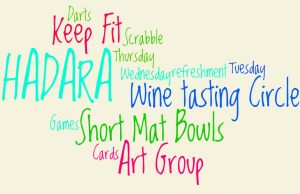 Darts
Keep Fit
Scrabble
Thursday
HADARA
Wednesday refreshment Tuesday
Wine tasting Circle
Games
Short Mat Bowls
Cards
Art Group